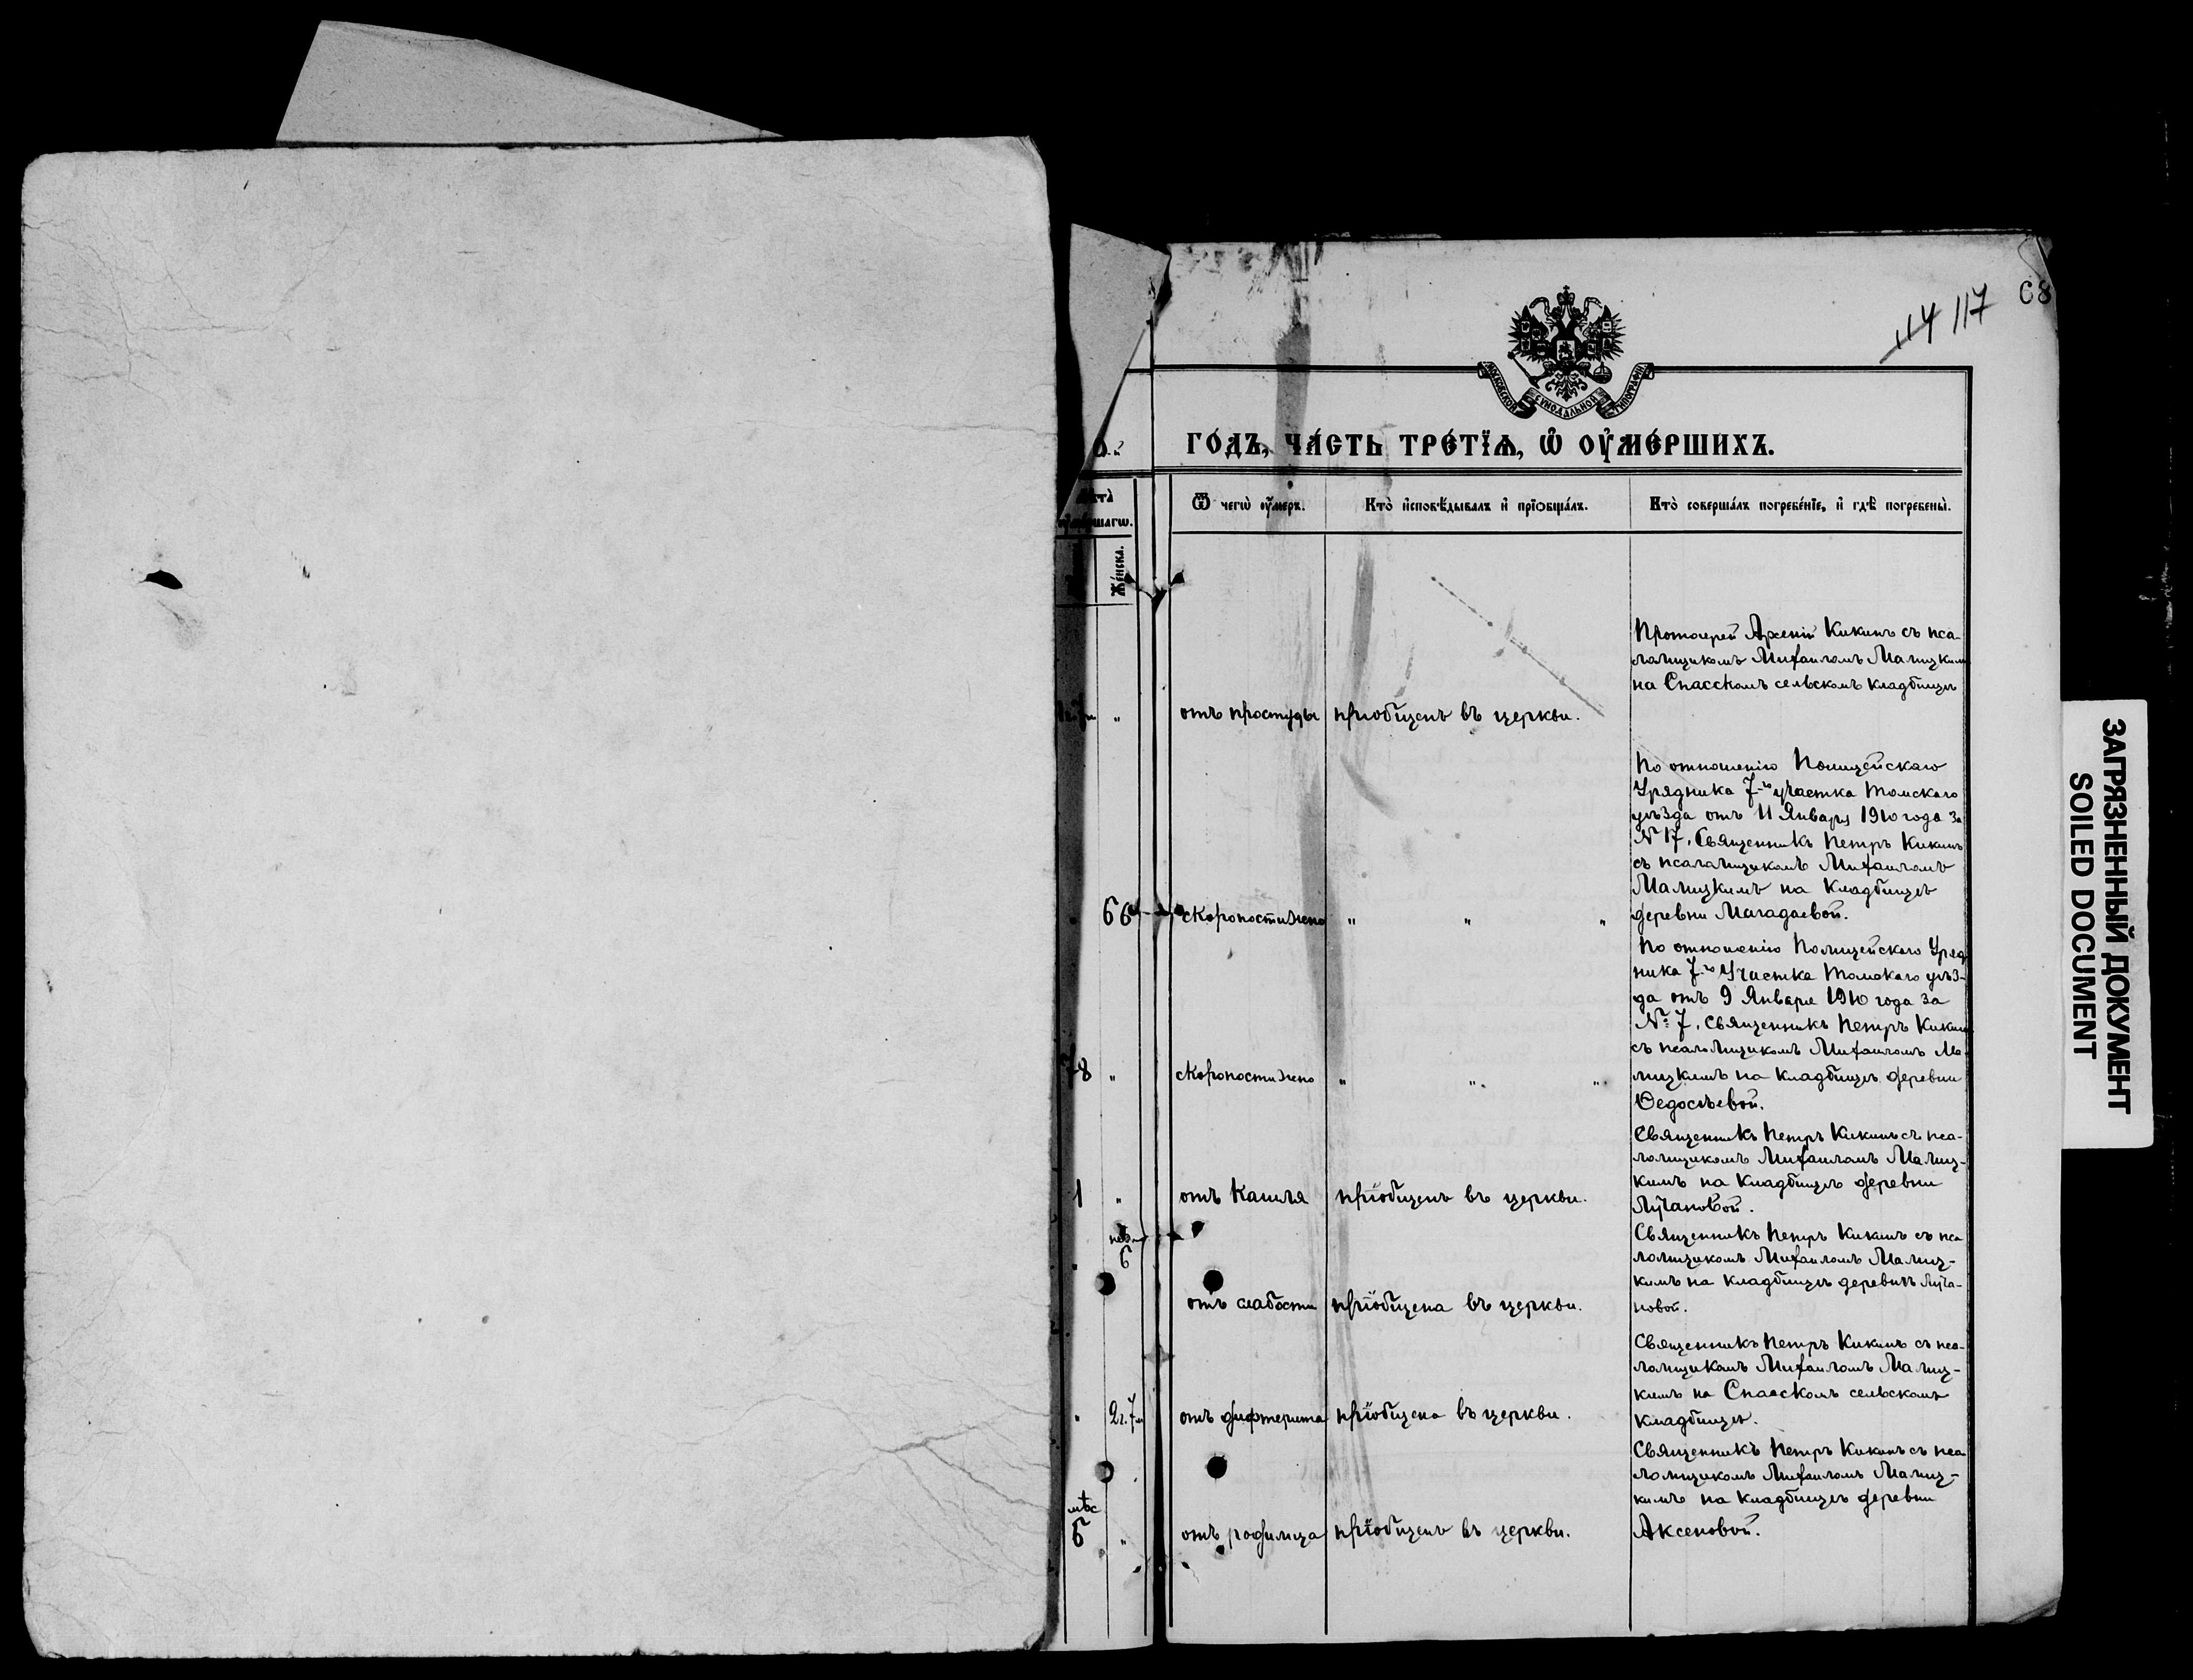 114 117
С8
МОСКОВСКОЙ СѴНОДАЛЬНОЙ ТИПОГРАФІИ
ГО́ДЪ, ЧА́СТЬ ТРЕ́ТЇѦ, Ѽ ОУ҆МЕ́РШИХЪ.
Лѣта̀
оу҆ме́ршагѡ.
Же́нска.
Ѿ чегѡ̀ оу҆́меръ.
Кто̀ и҆сповѣ́дывалъ и҆ прїѡбща́лъ.
Кто̀ соверша́лъ погребе́нїе, и҆ гдѣ̀ погребены̀.
"
отъ простуды
приобщенъ въ церкви.
Протоіерей Арсеній Кикинъ съ пса-
ломщикомъ Михаиломъ Малицким
на Спасскомъ сельскомъ кладбищѣ
" 66
скоропостижно
" " "
По отношенію Полицейскаго
Урядника 7-го участка Томскаго
уѣзда отъ 11 Января 1910 года за
№ 17, Священникъ Петръ Кикинъ
съ псаломщикомъ Михаиломъ
Малицкимъ на кладбищѣ
деревни Магадаевой.
78 "
скоропостижно
" " "
По отношенію Полицейскаго Уряд
ника 7-го Участка Томскаго уѣз-
да отъ 9 Января 1910 года за
№ 7, Священникъ Петръ Кикин
съ псаломщикомъ Михаиломъ Ма-
лицкимъ на кладбищѣ деревни
Ѳедосѣевой.
1 "
отъ кашля
пріобщенъ въ церкви.
Священникъ Петръ Кикинъ съ пса-
ломщикомъ Михаиломъ Малиц-
кимъ на кладбищѣ деревни
Лучановой.
" 6
отъ слабости
пріобщена въ церкви.
Священникъ Петръ Кикинъ съ пса
ломщикомъ Михаиломъ Малиц-
кимъ на кладбищѣ деревнѣ Луча-
новой.
" 2г.7м
отъ дифтерита
пріобщена въ церкви.
Священникъ Петръ Кикинъ съ пса-
ломщикомъ Михаиломъ Малиц-
кимъ на Спасскомъ сельскомъ
кладбищѣ.
мѣс
6 "
отъ родимца
пріобщенъ въ церкви.
Священникъ Петръ Кикинъ съ пса
ломщикомъ Михаиломъ Малиц-
кимъ на кладбищѣ деревни
Аксеновой.
ЗАГРЯЗНЕННЫЙ ДОКУМЕНТ
SOILED DOCUMENT